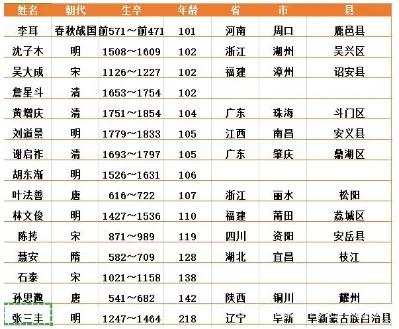 姓名 朝代 生卒 年龄 省 市 县
李耳 春秋战国 前571～前471 101 河南 周口 鹿邑县
沈子木 明 1508～1609 102 浙江 湖州 吴兴区
吴大成 宋 1126～1227 102 福建 漳州 诏安县
詹星斗 清 1653～1754 102
黄增庆 清 1751～1854 104 广东 珠海 斗门区
刘道景 明 1779～1833 105 江西 南昌 安义县
谢启祚 清 1693～1797 105 广东 肇庆 鼎湖区
胡东渐 明 1526～1631 106
叶法善 唐 616～722 107 浙江 丽水 松阳
林文俊 明 1427～1536 110 福建 莆田 荔城区
陈抟 宋 871～989 119 四川 资阳 安岳县
慧安 隋 582～709 128 湖北 宜昌 枝江
石泰 宋 1021～1158 138
孙思邈 唐 541～682 142 陕西 铜川 耀州
张三丰 明 1247～1464 218 辽宁 阜新 阜新蒙古族自治县